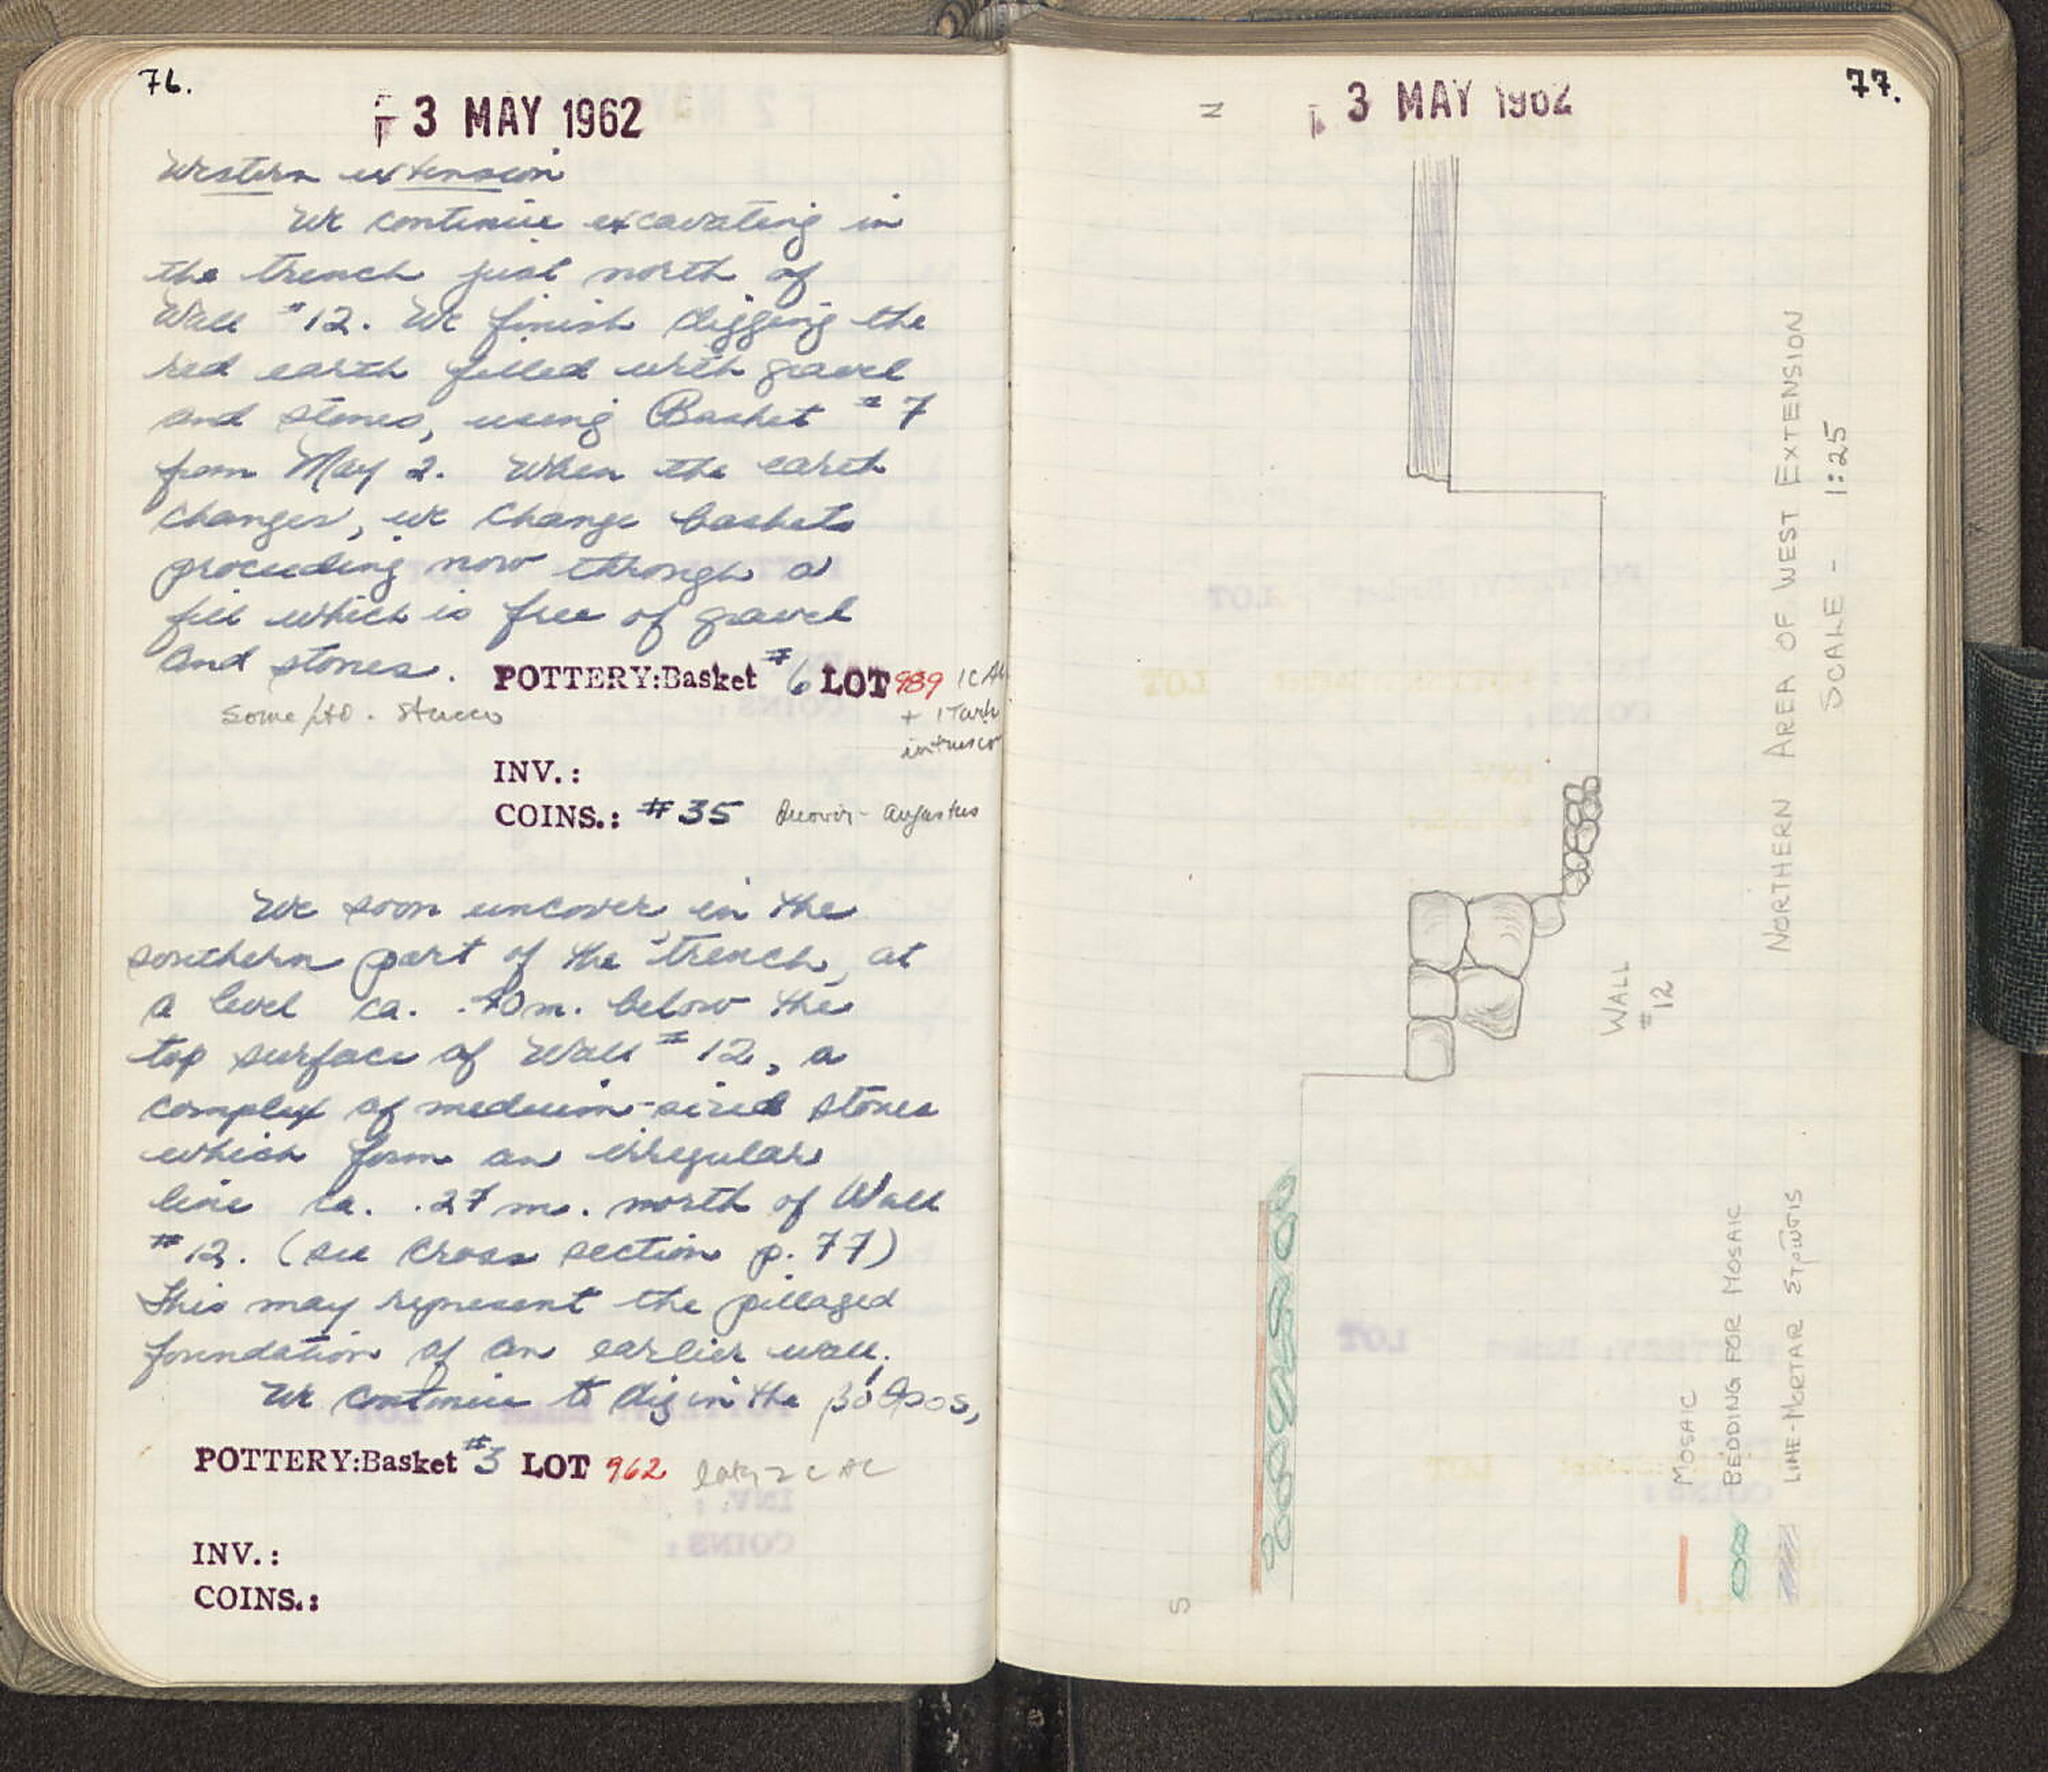 76.
3 MAY 1962
Western extension
We continue excavating in
the trench just north of
Wall #12. We finish digging the
red earth filled with gravel
and stones, using Basket #7
from May 2. When the earth
changes, we change baskets
proceeding now through a
fill which is free of gravel
and stones. POTTERY:Basket #6 LOT 989 1C AD
some stucco + 1 Turk
INV.:
COINS.: #35 Duovir - Augustus
We soon uncover in the
southern part of the trench, at
a level ca. .40m. below the
top surface of Wall #12, a
complex of medium-sized stones
which form an irregular
line ca. .27 m. north of Wall
#12. (see cross section p. 77)
This may represent the pillaged
foundation of an earlier wall.
We continue to dig in the βόθρος,
POTTERY:Basket #3 LOT 962 2 C
INV.:
COINS.:
77.
3 MAY 1962
N
NORTHERN AREA OF WEST EXTENSION
SCALE - 1:25
WALL
#12
MOSAIC
BEDDING FOR MOSAIC
LIME-MORTAR Στρῶσις
S